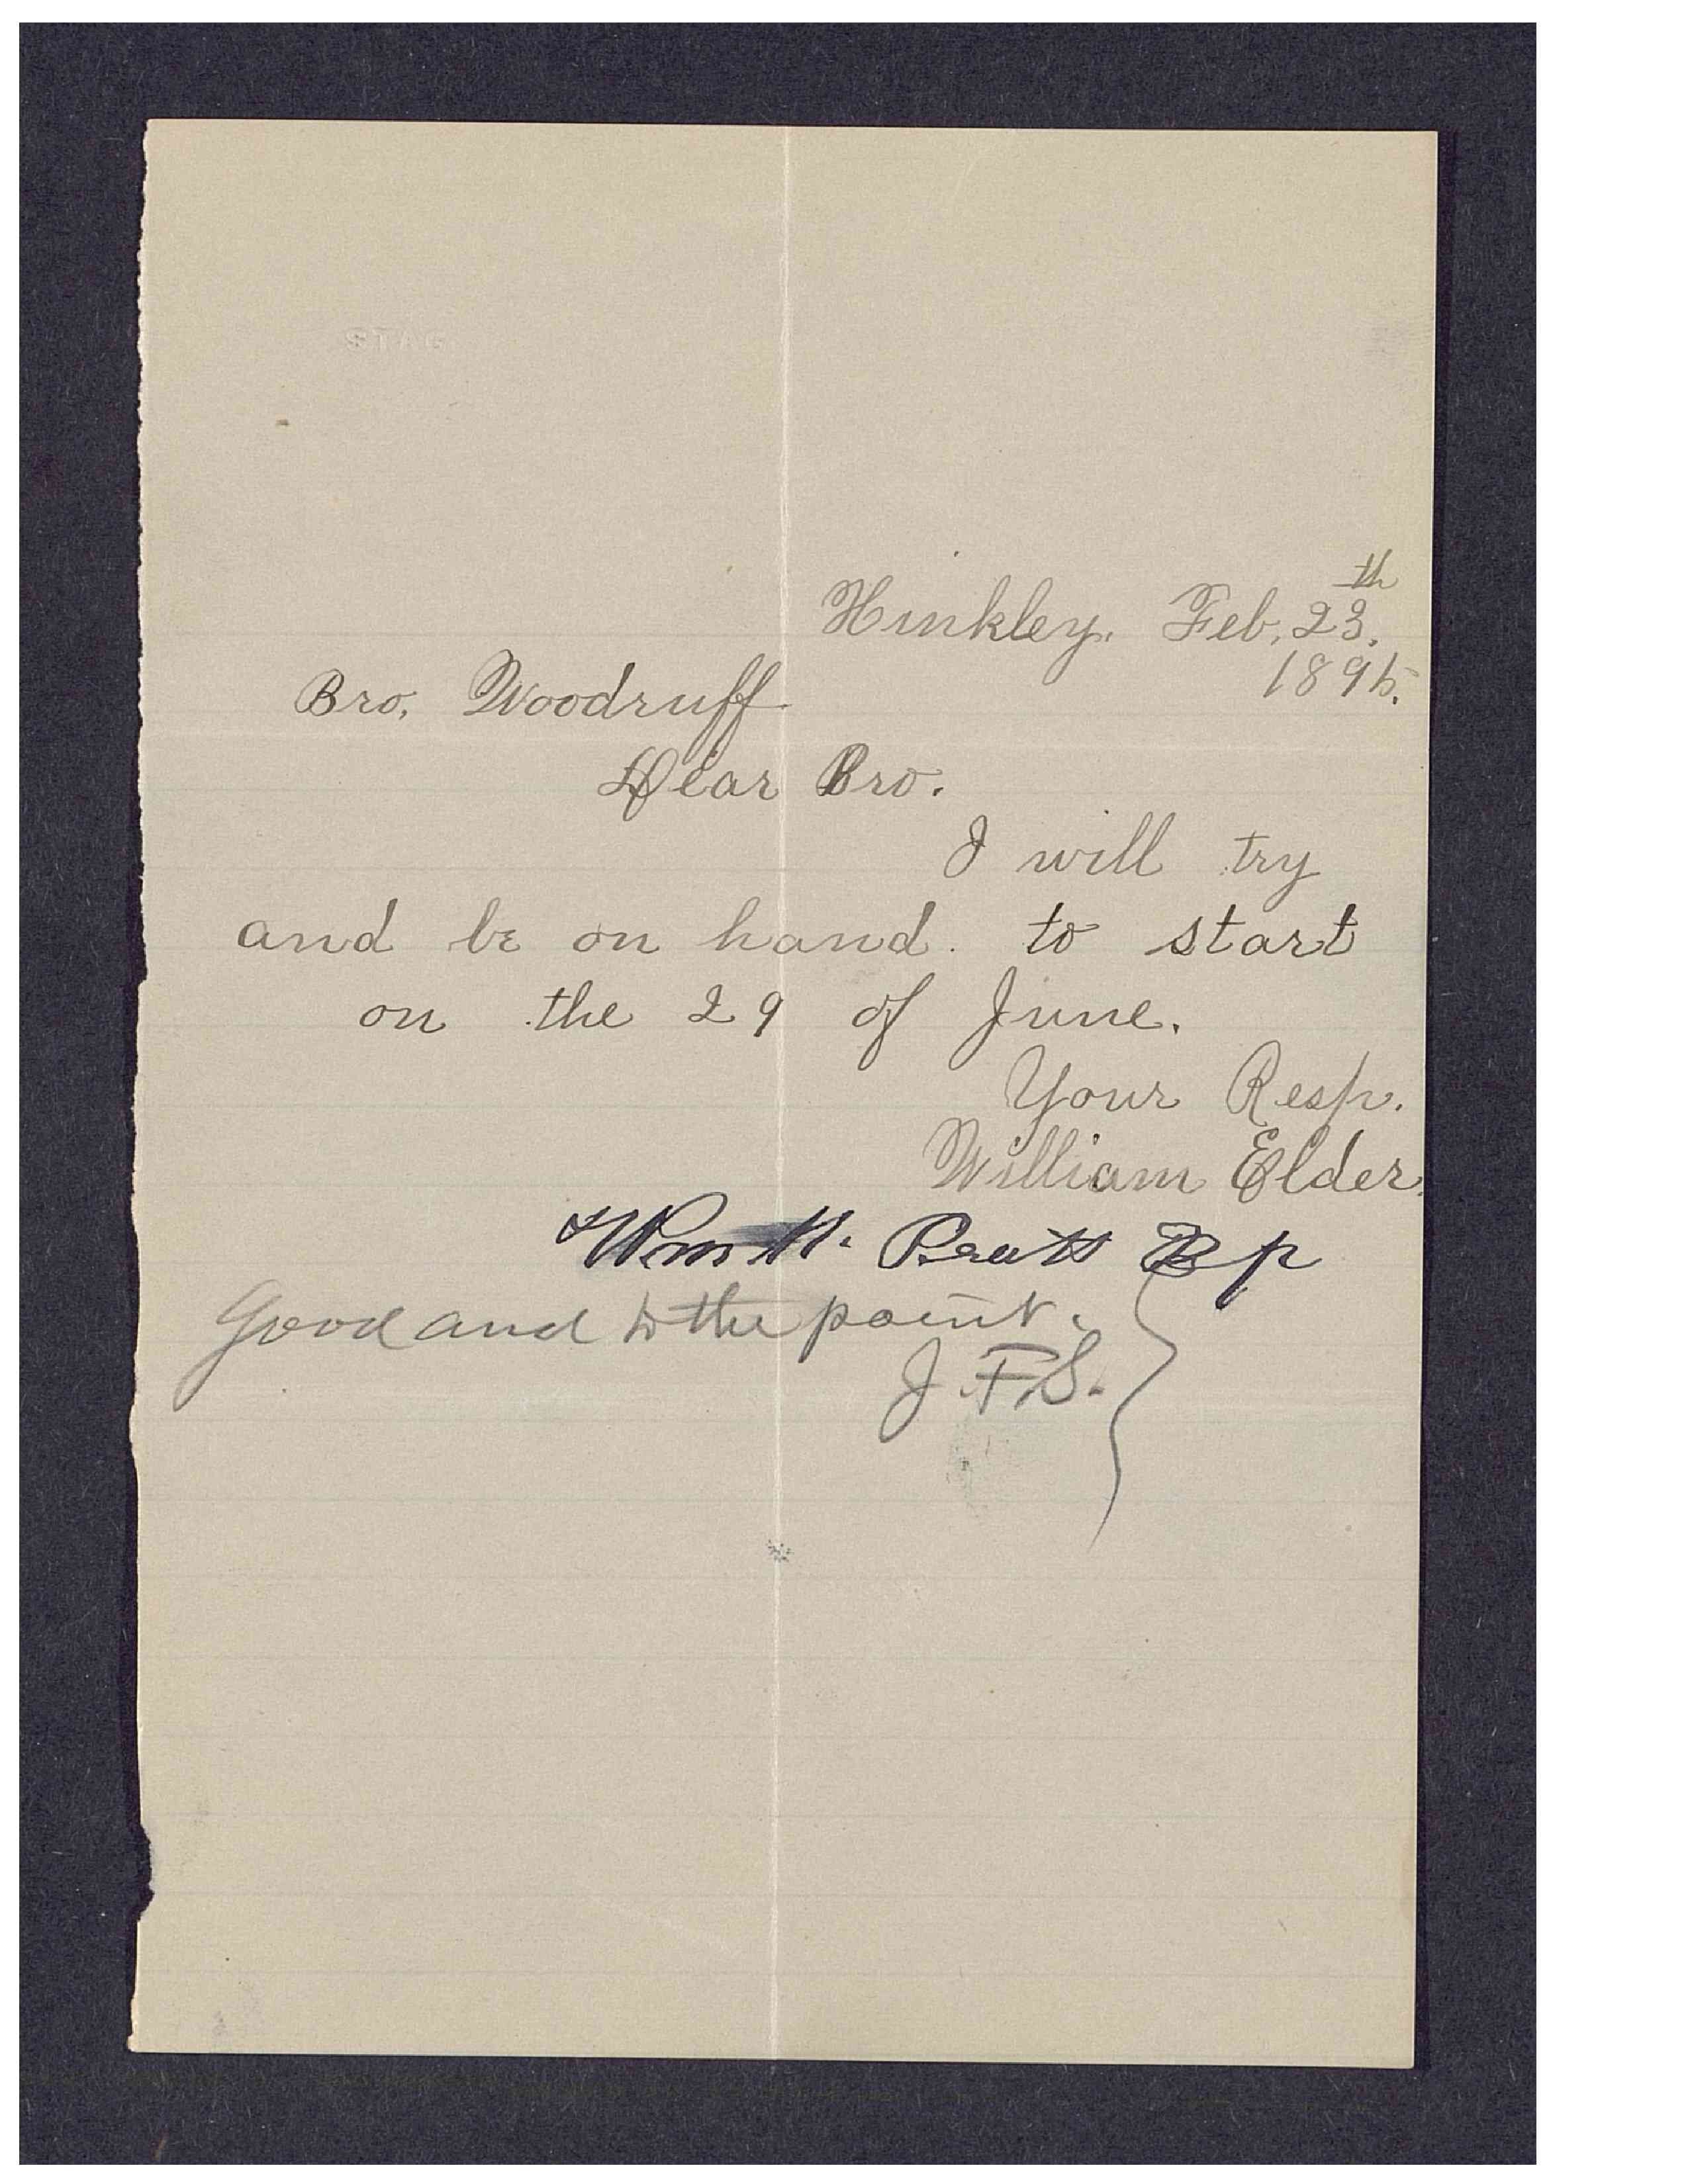 STAG
Hinkley. Feb, 23th.
1895.
Bro. Woodruff
Dear Bro.
I will try
and be on hand. to start
on the 29 of June.
Your Resp.
William Elder.
Wm H. Pratt Bp
Good and to the point.
J.F.S.